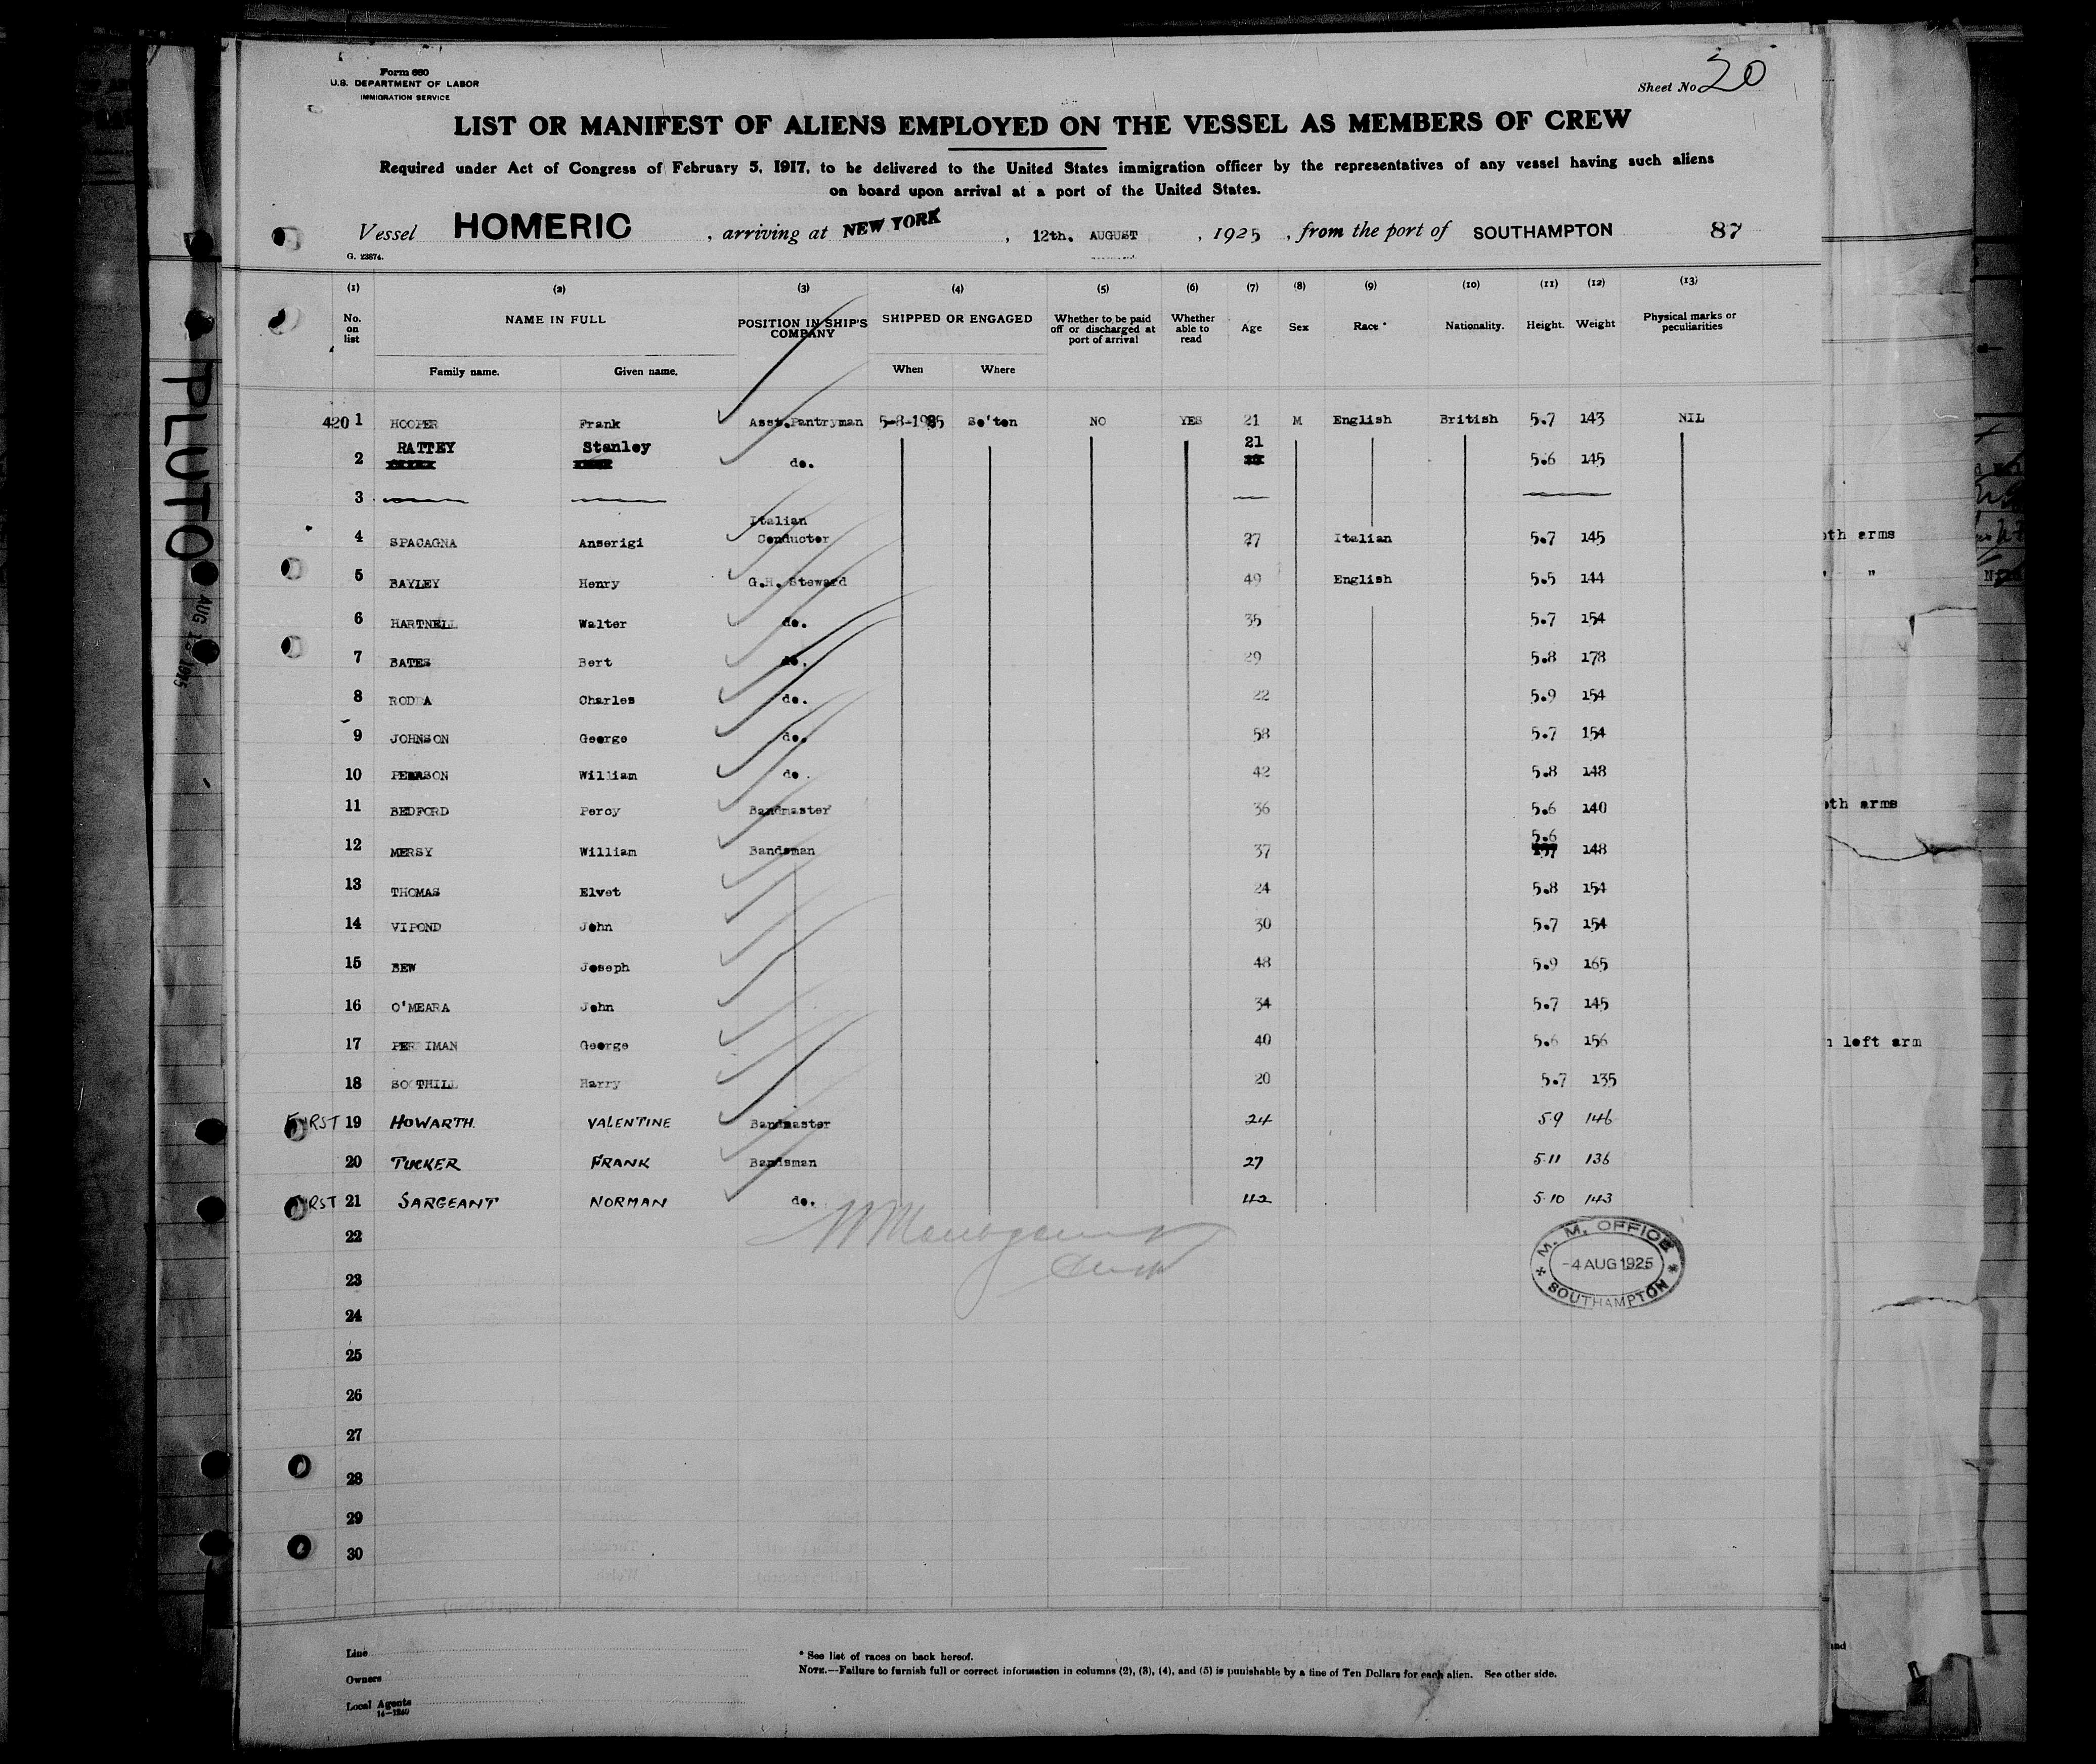 Form 680
U.S. DEPARTMENT OF LABOR
IMMIGRATION SERVICE
Sheet No 20
LIST OR MANIFEST OF ALIENS EMPLOYED ON THE VESSEL AS MEMBERS OF CREW
Required under Act of Congress of February 5, 1917, to be delivered to the United States immigration officer by the representatives of any vessel having such aliens
on board upon arrival at a port of the United States.
Vessel HOMERIC , arriving at NEW YORK , 12th. AUGUST , 1925 , from the port of SOUTHAMPTON 87
G. 23874.
(1) (2) (3) (4) (5) (6) (7) (8) (9) (10) (11) (12) (13)
No. on list NAME IN FULL POSITION IN SHIP'S COMPANY SHIPPED OR ENGAGED Whether to be paid off or discharged at port of arrival Whether able to read Age Sex Race * Nationality. Height. Weight Physical marks or peculiarities
Family name. Given name. When Where
420 1 HOOPER Frank Asst.Pantryman 5-8-1925 So'ton NO YES 21 M English British 5.7 143 NIL
2 RATTEY Stanley do. 21 5.6 145
3
4 SPACAGNA Anserigi Italian Conductor 27 Italian 5.7 145
5 BAYLEY Henry G.H. Steward 49 English 5.5 144
6 HARTNELL Walter do. 35 5.7 154
7 BATES Bert do. 29 5.8 178
8 RODDA Charles do. 22 5.9 154
9 JOHNSON George do. 58 5.7 154
10 PEARSON William do. 42 5.8 148
11 BEDFORD Percy Bandmaster 36 5.6 140
12 MERSY William Bandsman 37 5.6 148
13 THOMAS Elvet 24 5.8 154
14 VIPOND John 30 5.7 154
15 BEW Joseph 48 5.9 165
16 O'MEARA John 34 5.7 145
17 PERRIMAN George 40 5.6 156
18 SOOTHILL Harry 20 5.7 135
FIRST 19 HOWARTH. VALENTINE Bandmaster 24 5.9 146
20 TUCKER FRANK Bandsman 27 5.11 136
FIRST 21 SARGEANT NORMAN do. 42 5.10 143
22
23
24
25
26
27
28
29
30
M. M. OFFICE
-4 AUG 1925
SOUTHAMPTON
Line
Owners
Local Agents
14—1240
* See list of races on back hereof.
NOTE.—Failure to furnish full or correct information in columns (2), (3), (4), and (5) is punishable by a fine of Ten Dollars for each alien. See other side.
PLUTO
arms
" "
arms
left arm